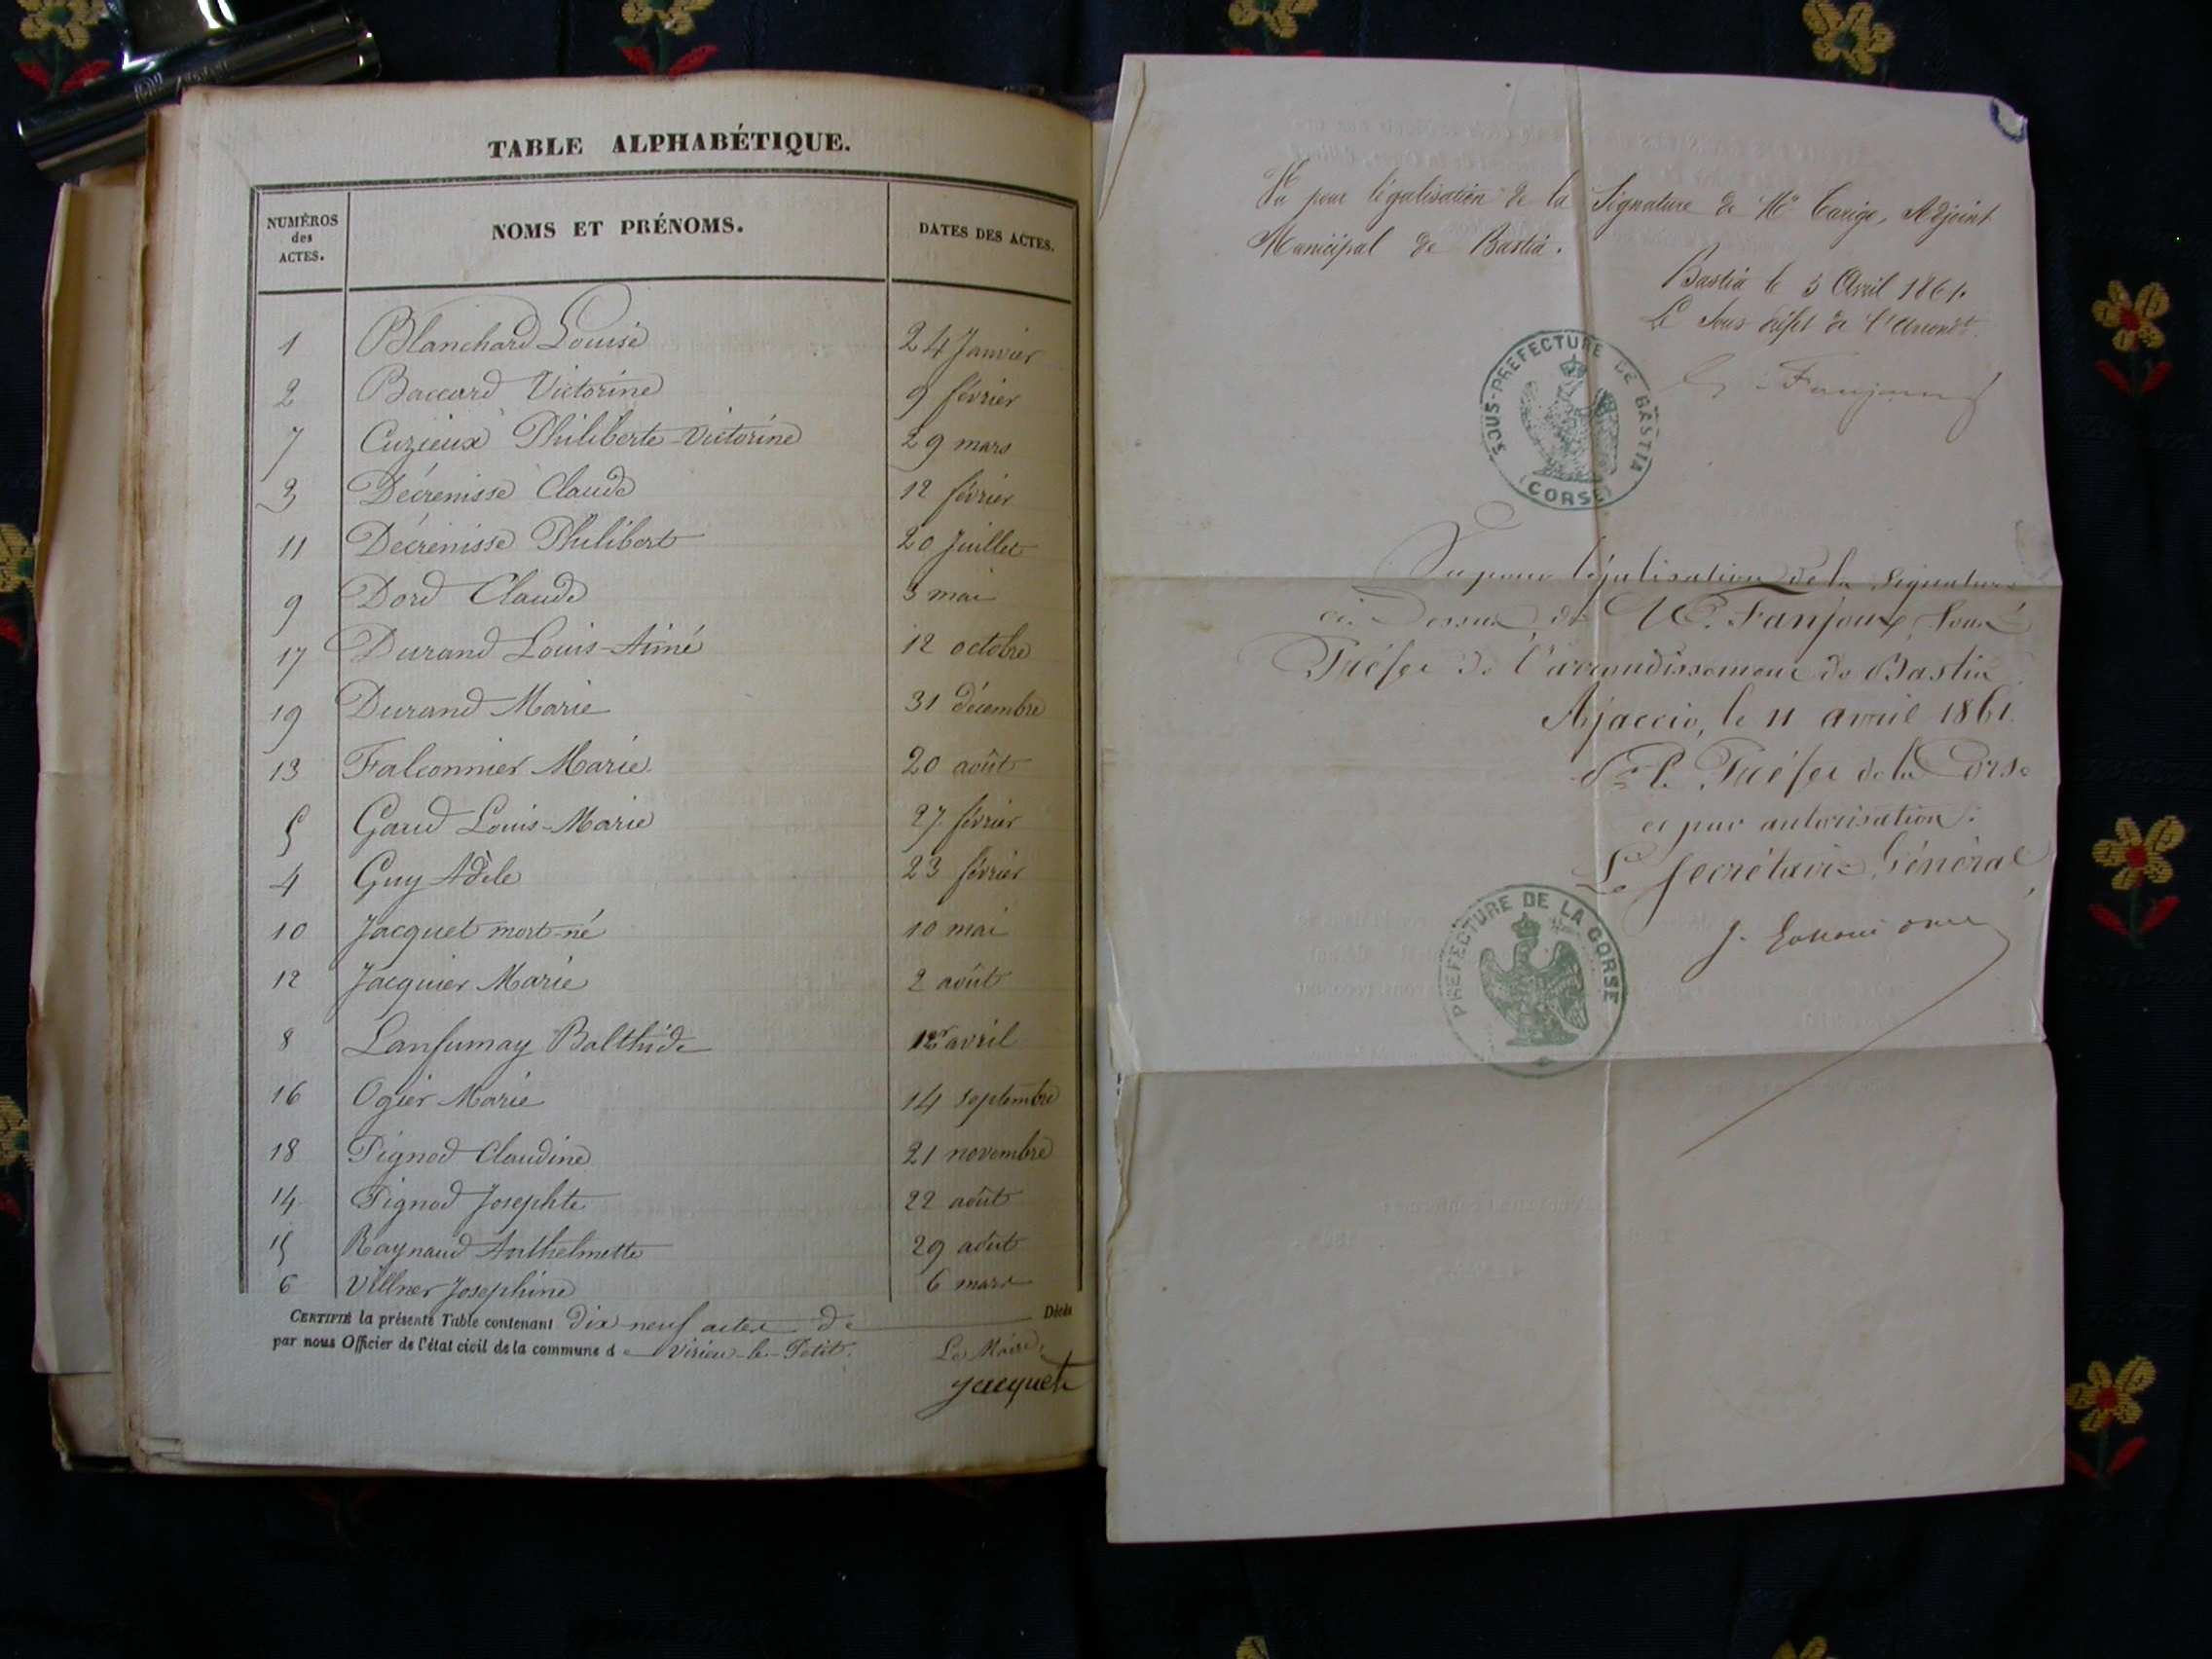 TABLE ALPHABÉTIQUE.
NUMÉROS des ACTES. NOMS ET PRÉNOMS. DATES DES ACTES.
1 Blanchard Louise 24 Janvier
2 Baccard Victorine 9 février
7 Cuzieux Philiberte-Victorine 29 mars
3 Décrenisse Claude 12 février
11 Décrenisse Philibert 20 Juillet
9 Dord Claude 3 mai
17 Durand Louis-Aimé 12 octobre
19 Durand Marie 31 décembre
13 Falconnier Marie 20 août
5 Gaud Louis-Marie 27 février
4 Guy Adèle 23 février
10 Jacquet mort-né 10 mai
12 Jacquier Marie 2 août
8 Lanfumay Balthide avril
16 Ogier Marie 14 septembre
18 Pignod Claudine 21 novembre
14 Pignod Josephte 22 août
15 Raynaud Anthelmette 29 août
6 Villner Josephine 6 mars
CERTIFIÉ la présente Table contenant dix neuf actes de Décès
par nous Officier de l'état civil de la commune de Virieu-le-Petit.
Le Maire,
Jacquet
Vu pour légalisation de la Signature de Mr Carige, Adjoint
Municipal de Bastia.
Bastia le 5 Avril 1861.
Le Sous Préfet de l'Arrondt
SOUS-PREFECTURE DE BASTIA
(CORSE)
Vu pour légalisation de la signature
ci-Dessus de M. Fanjoux, Sous
Préfet de l'arrondissement de Bastia
Ajaccio, le 11 avril 1861.
Pr le Préfet de la Corse
et par autorisation:
Le Secrétaire Général,
PREFECTURE DE LA CORSE